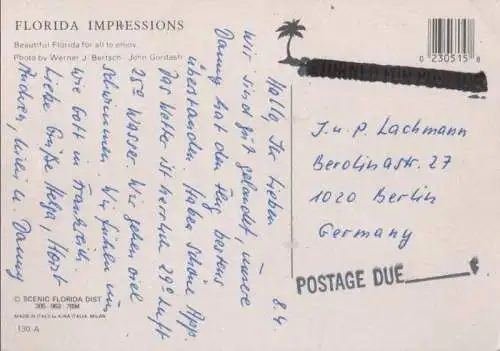 FLORIDA IMPRESSIONS
Beautiful Florida for all to enjoy.
Photo by Werner J. Bertsch John Gordash
0 230515 8
8.4.
Hallo, Ihr Lieben
wir sind gut gelandet, unsere
Danny hat den Flug bestens
überstanden. Haben schöne App.
Das Wetter ist herrlich 29° Luft
25° Wasser. Wir gehen viel
schwimmen. Wir fühlen uns
wie Gott in Frankreich.
Liebe Grüße Helga, Horst
u. Danny
J. u. P. Lachmann
Berolinastr. 27
1020 Berlin
Germany
POSTAGE DUE
© SCENIC FLORIDA DIST
305-963-7894
MADE IN ITALY by KINA ITALIA MILAN
130 A